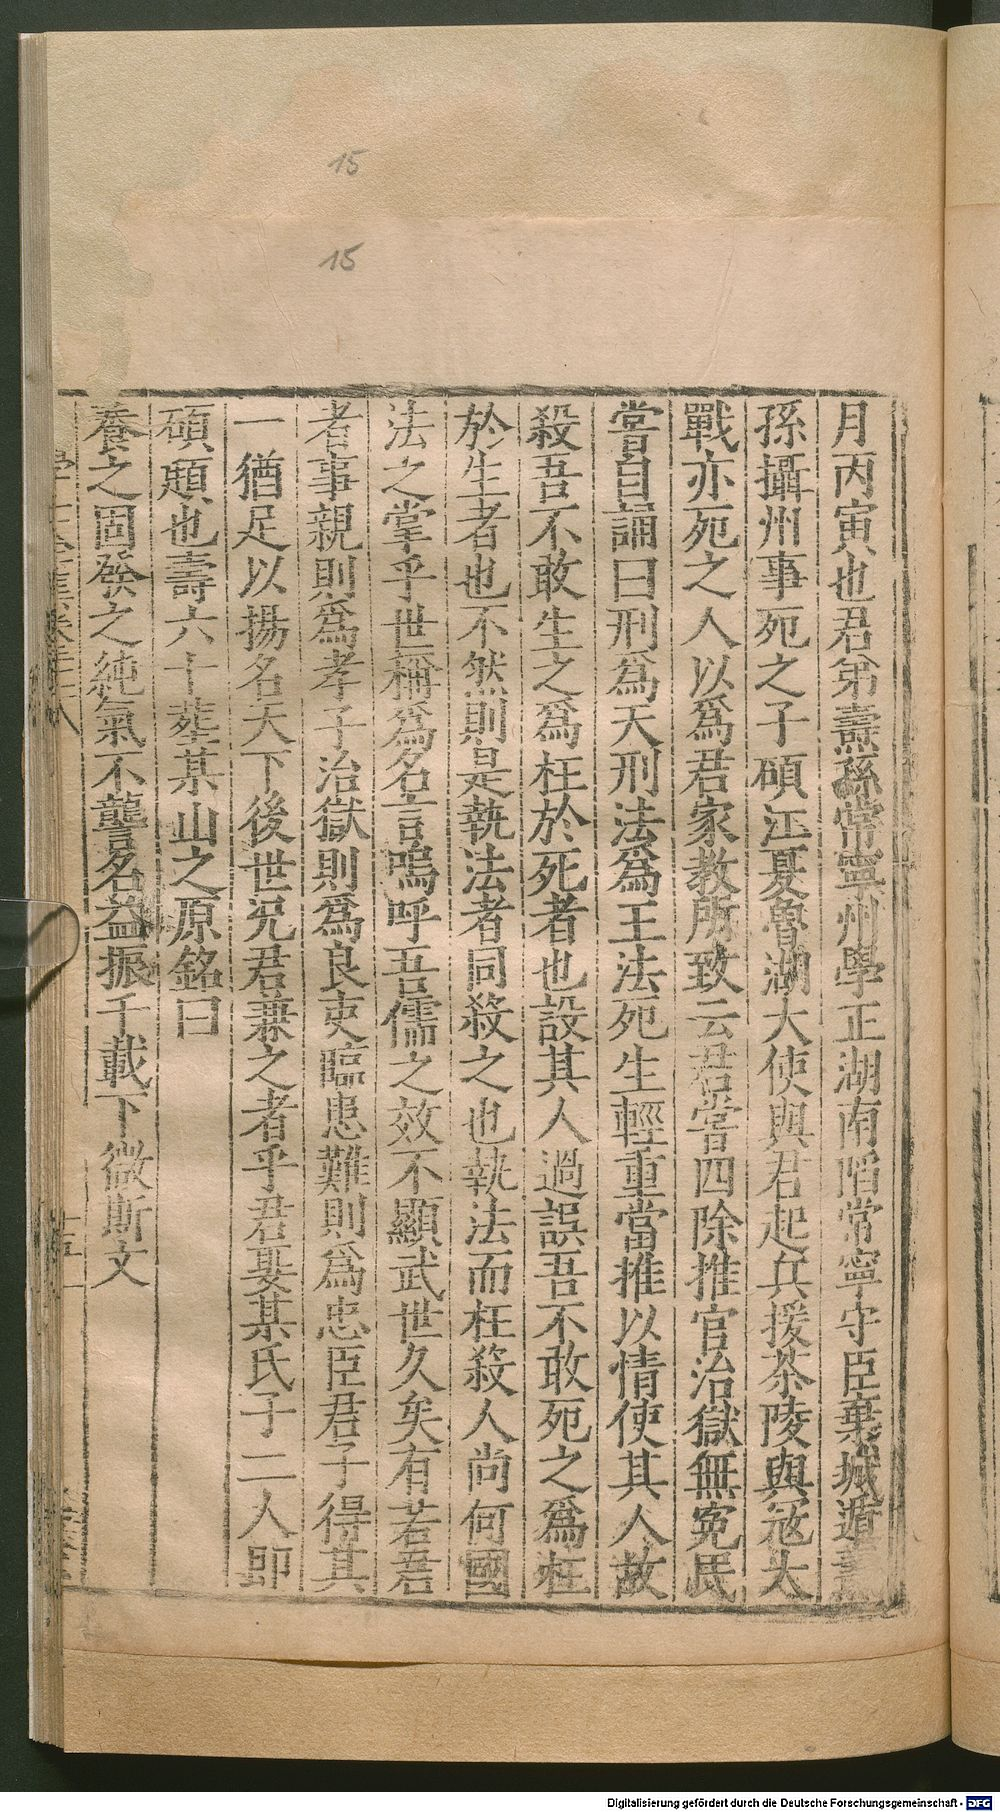 15
15
月丙寅也君弟燾孫常寧州學正湖南陷常寧守臣棄城遁燾
孫攝州事死之子碩江夏魯湖大使與君起兵援茶陵與冦大
戰亦死之人以爲君家教所致云君嘗四除推官治獄無冤民
嘗自誦曰刑爲天刑法爲王法死生輕重當推以情使其人故
殺吾不敢生之爲枉於死者也設其人過誤吾不敢死之爲枉
於生者也不然則是執法者同殺之也執法而枉殺人尚何國
法之掌乎世稱爲名言嗚呼吾儒之效不顯武世久矣有若君
者事親則爲孝子治獄則爲良吏臨患難則爲忠臣君子得其
一猶足以揚名天下後世况君兼之者乎君娶某氏子二人即
碩頤也壽六十塟某山之原銘曰
養之固發之純氣不讋名益振千載下徵斯文
Digitalisierung gefördert durch die Deutsche Forschungsgemeinschaft - DFG